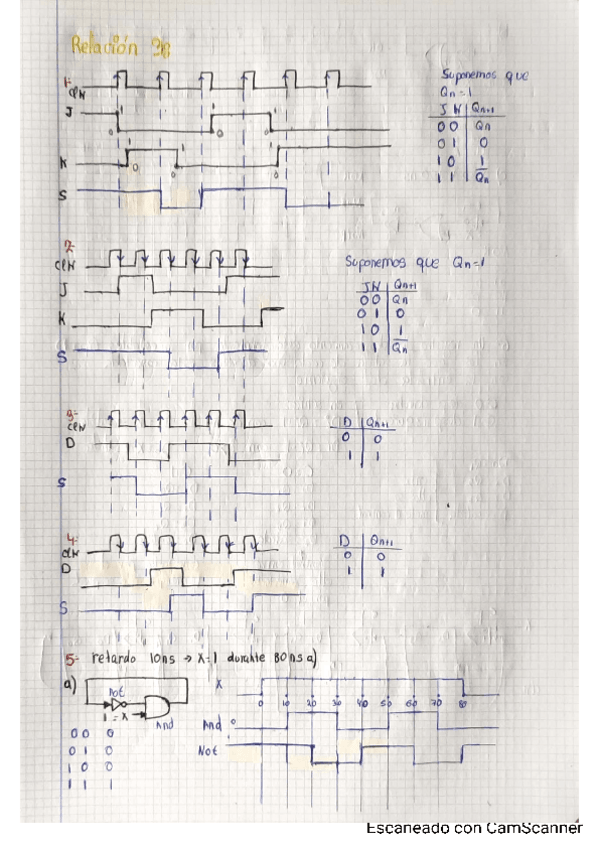 Relación 3B
1-
Clk
J
K
S
1 1 1
0 0 0
0 0
Suponemos que
Qn=1
J K Qn+1
0 0 Qn
0 1 0
1 0 1
1 1 Q̅n
2-
Clk
J
K
S
Suponemos que Qn=1
JK Qn+1
0 0 Qn
0 1 0
1 0 1
1 1 Q̅n
3-
Clk
D
S
D Qn+1
0 0
1 1
4-
Clk
D
S
D Qn+1
0 0
1 1
5- retardo 10ns → X=1 durante 80ns a)
a) not
1 = x And
0 0 0
0 1 0
1 0 0
1 1 1
X
0 10 20 30 40 50 60 70 80
And 0
Not
Escaneado con CamScanner